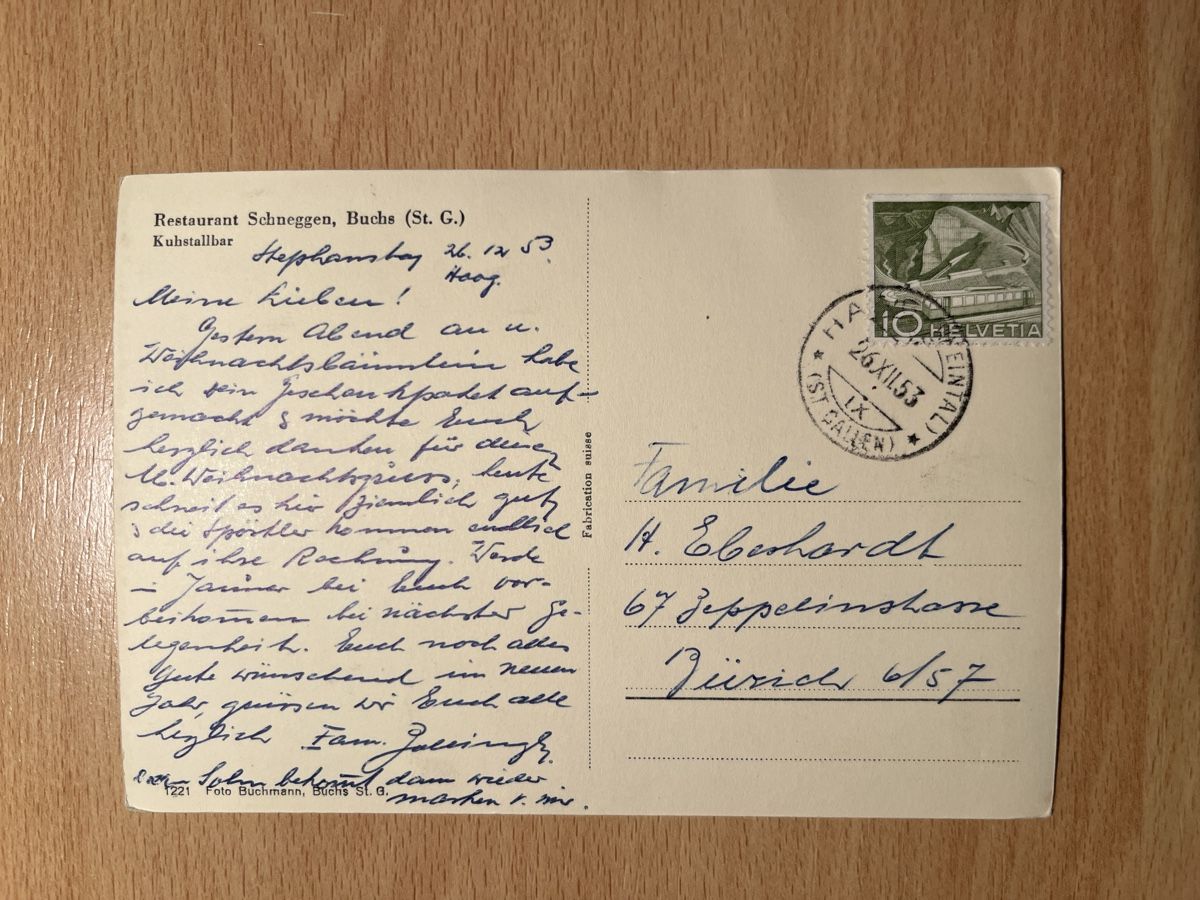 Restaurant Schneggen, Buchs (St. G.)
Kuhstallbar
Stephanstag 26. 12 53.
Haag.
Meine Lieben!
Gestern Abend am u.
Weihnachtsbäumlein habe
ich Geschenkpaket auf-
gemacht & möchte Euch
herzlich danken für
heute
schneit es hier ziemlich gut,
& die Sportler kommen endlich
auf ihre Rechnung. Werde
Januar bei Euch vor-
beikommen bei nächster Ge-
legenheit. Euch noch alles
Gute wünschend im neuen
Jahr, grüssen wir Euch alle
herzlich Fam.
Sohn bekommt dann wieder
marken v. mir.
1221 Foto Buchmann, Buchs St. G.
Fabrication suisse
10 HELVETIA
HAAG (RHEINTAL)
26.XII.53
IX
(ST. GALLEN)
Familie
H. Eberhardt
67 Zeppelinstrasse
Zürich 6/57